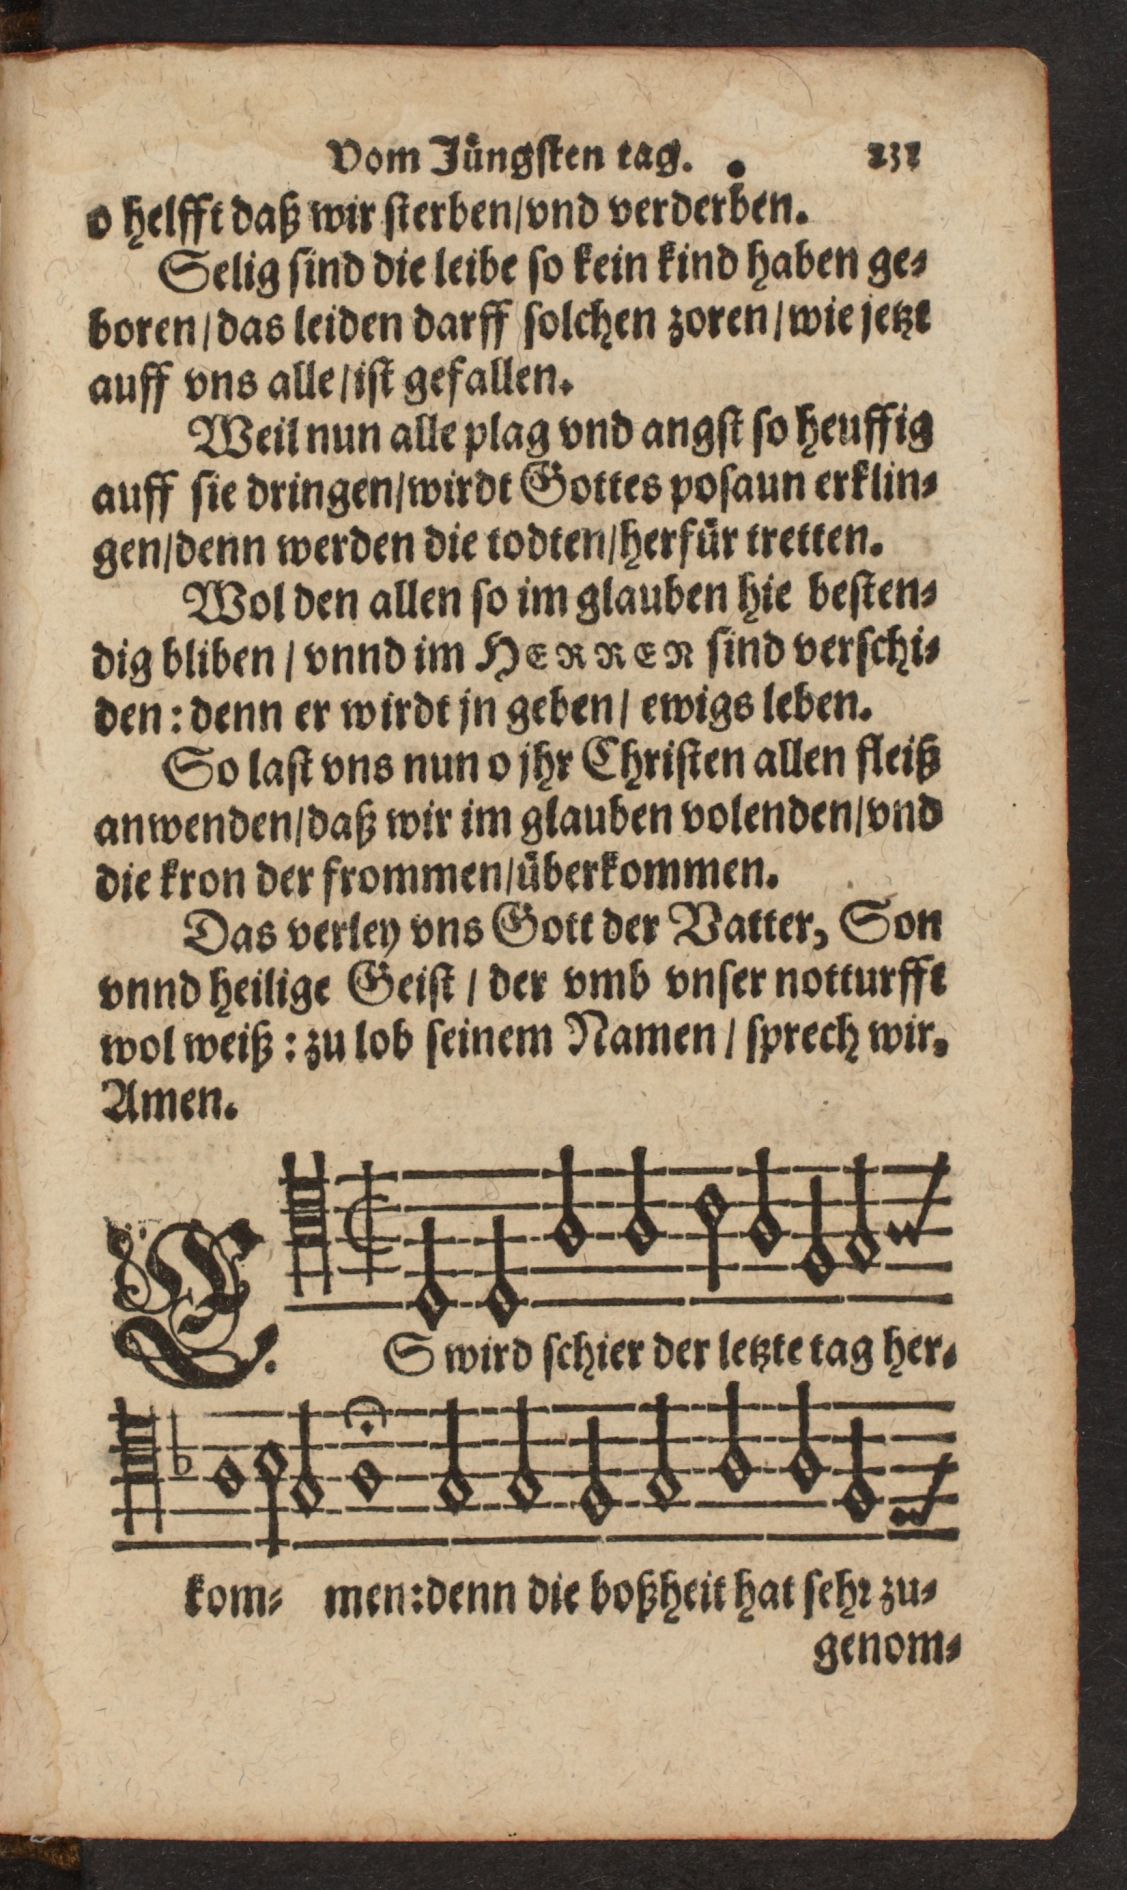 Vom Jüngsten tag. 231
o helfft daß wir sterben/vnd verderben.
Selig sind die leibe so kein kind haben ge-
boren/das leiden darff solchen zoren/wie jetzt
auff vns alle/ist gefallen.
Weil nun alle plag vnd angst so heuffig
auff sie dringen/wirdt Gottes posaun erklin-
gen/denn werden die todten/herfür tretten.
Wol den allen so im glauben hie besten-
dig bliben/vnnd im HERREN sind verschi-
den: denn er wirdt jn geben/ewigs leben.
So last vns nun o jhr Christen allen fleiß
anwenden/daß wir im glauben volenden/vnd
die kron der frommen/überkommen.
Das verley vns Gott der Vatter, Son
vnnd heilige Geist/der vmb vnser notturfft
wol weiß: zu lob seinem Namen/sprech wir.
Amen.
ES wird schier der letzte tag her-
kom- men: denn die boßheit hat sehr zu-
genom-